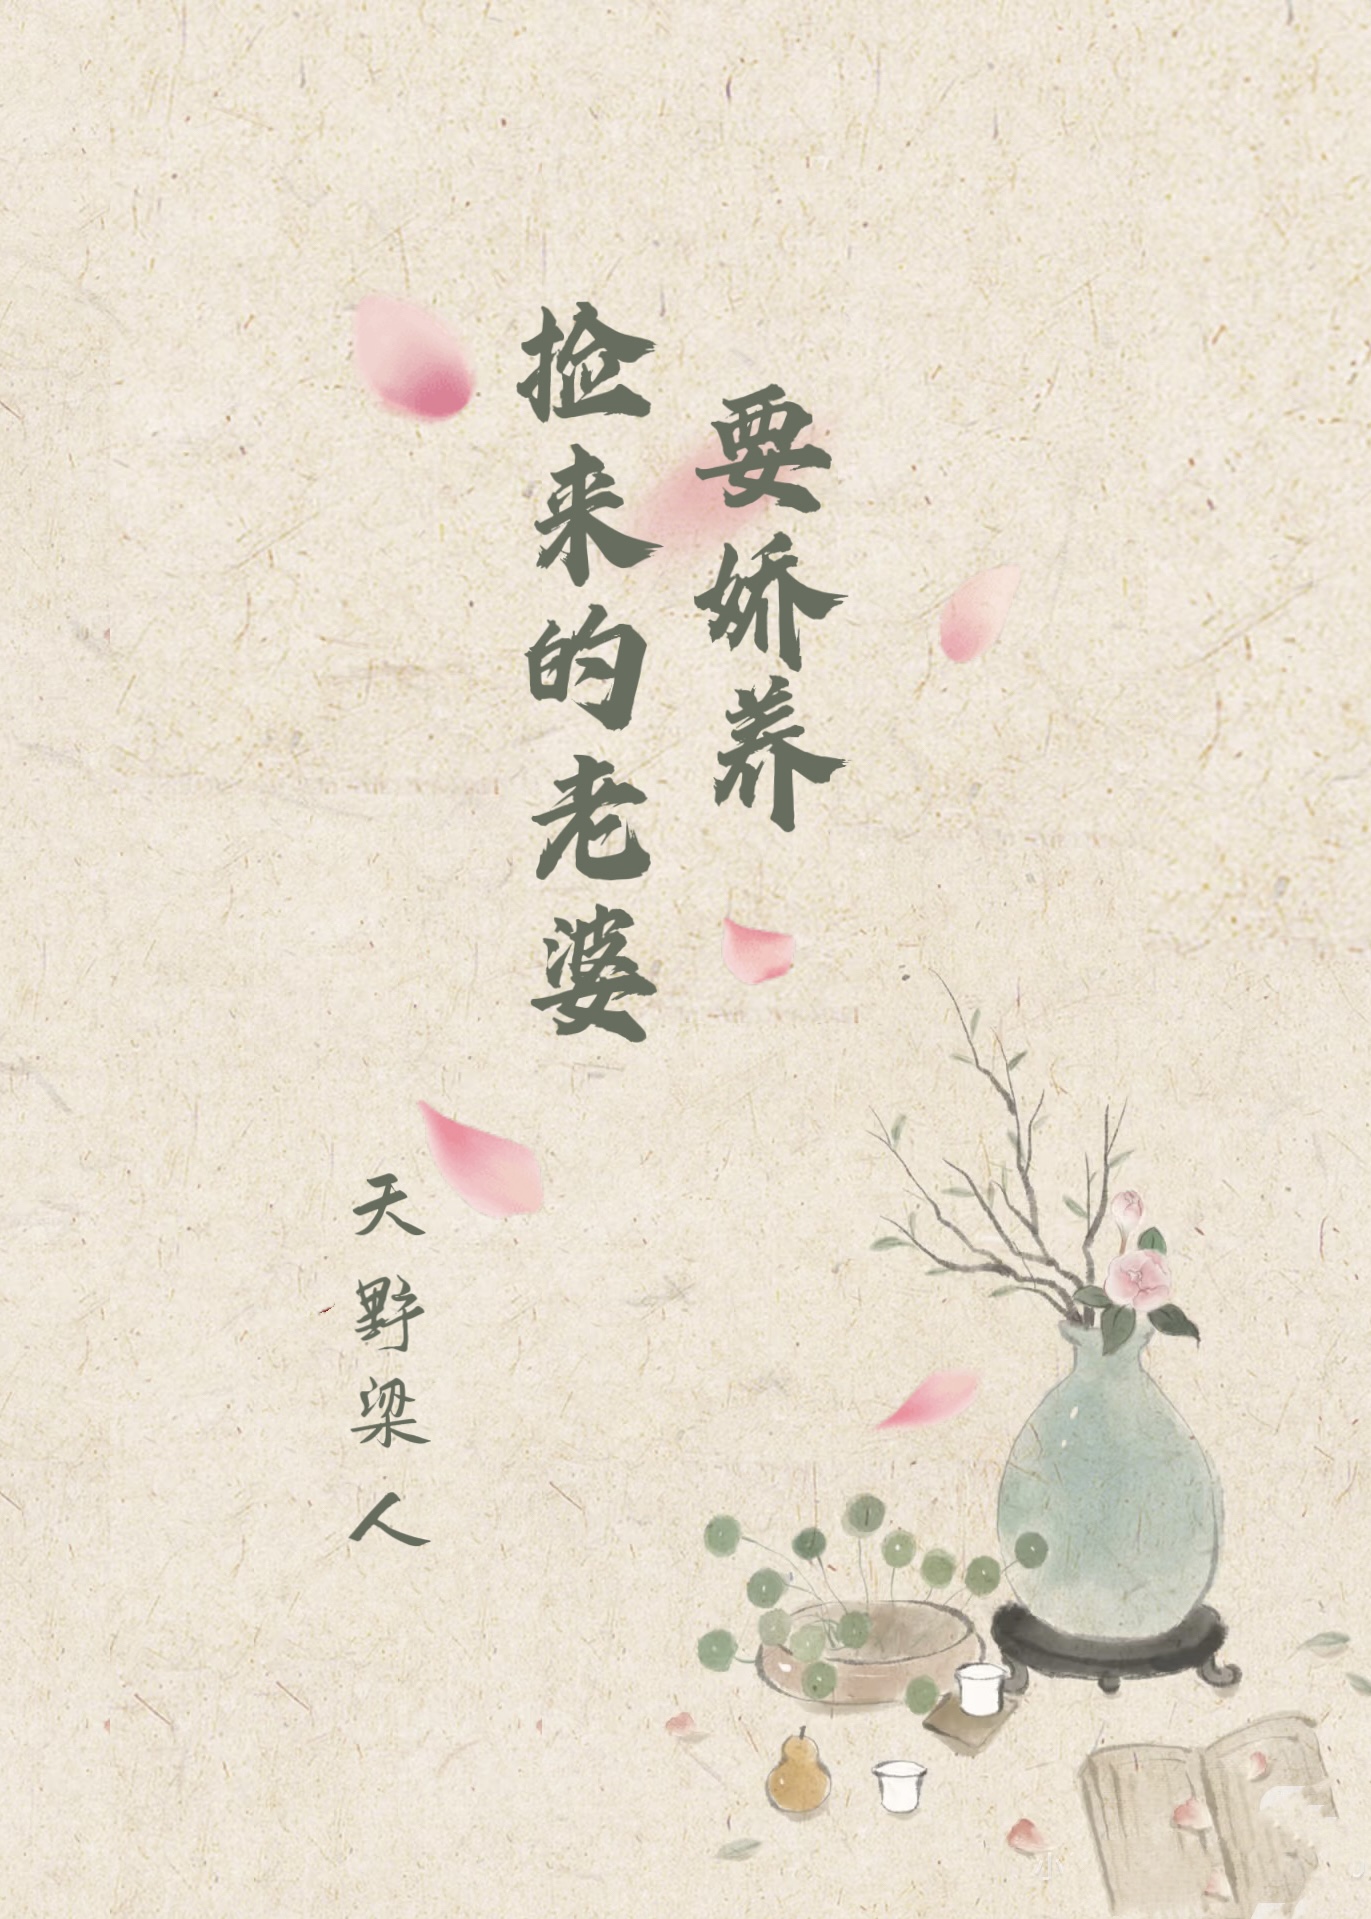 捡来的老婆
要娇养
天野梁人